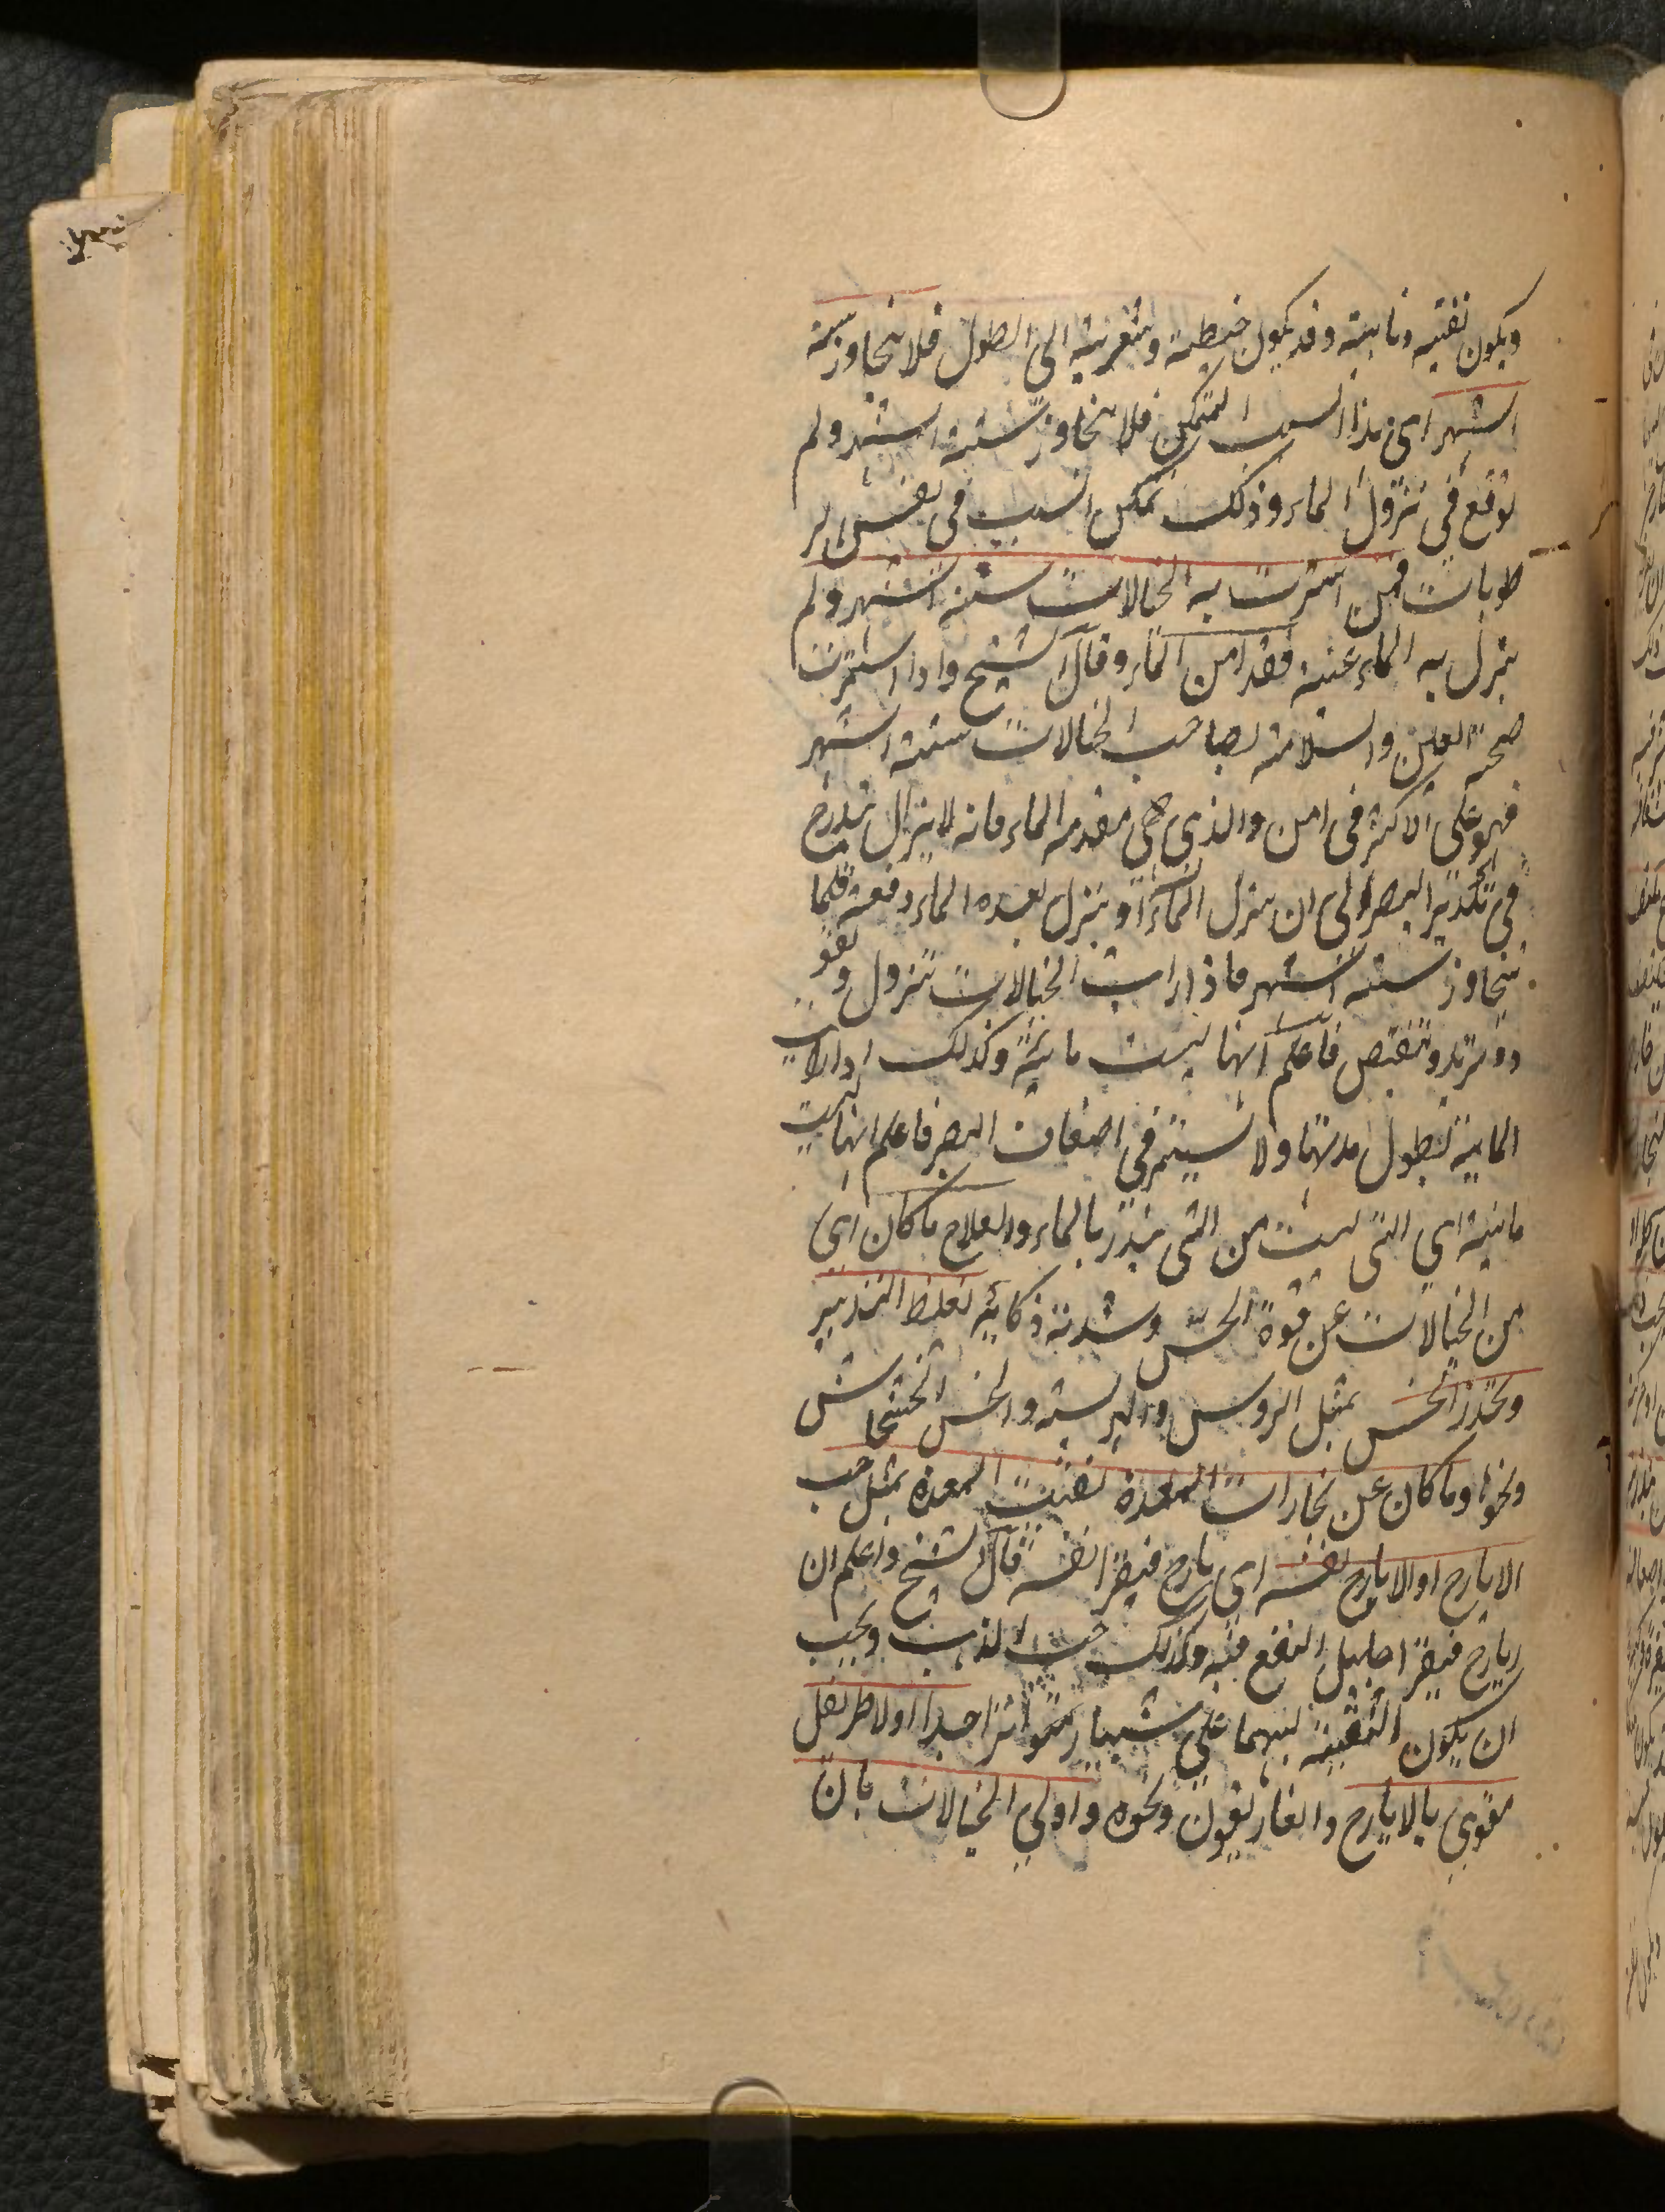 ويكون نفتيه وما بيته وقد يكون خيطية وشعرية الى الطول فلا يتجاوز ستة
اشهر اى هذا السبب المتمكن فلا يتجاوز ستة اشهر ولم
يوقع فى نزول الماء وذلك تمكن السبب فى نفس الر
طوبات فمن استمرت به الخيالات ستة اشهر ولم
ينزل به الماء عينه فقد امن الماء وقال الشيخ واذا استمرت
صحة العين والسلامة لصاحب الخيالات ستة اشهر
فهو على الاكثر فى امن والذى هى مقدمة الماء فانه لا يزال يتدرج
فى تكدير البصر الى ان ينزل الماء او ينزل بعده الماء دفعة وقلما
يتجاوز ستة اشهر فاذا رايت الخيالات تزول وتعو
د وتزيد وتنقص فاعلم انها ليست مائية وكذلك اذا رايت
المائية تطول مدتها ولا تستمر فى اضعاف البصر فاعلم انها ليست
مائية اى التى ليست من التى ينذر بالماء والعلاج ما كان اى
من الخيالات عن قوة الحس وشدة ذكائه تغلظ التدبير
وتخدر الحس بمثل الروس والهريسة والخس الخشخاش
ونحوها وما كان عن بخارات المعدة نقيت المعدة بمثل حب
الايارج او الايارج نفسه اى يارج فيقرا نفسه قال الشيخ واعلم ان
ايارج فيقرا جليل النفع فيه وكذلك حب الذهب ويجب
ان يكون التنقية بينهما على شبيار متواترا جدا او لاطريفل
مقوى بالايارج والغاريقون ونحوه واولى الخيالات بان